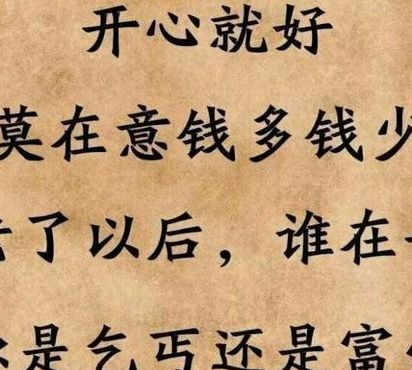 开心就好
莫在意钱多钱少
了以后，谁在
是乞丐还是富